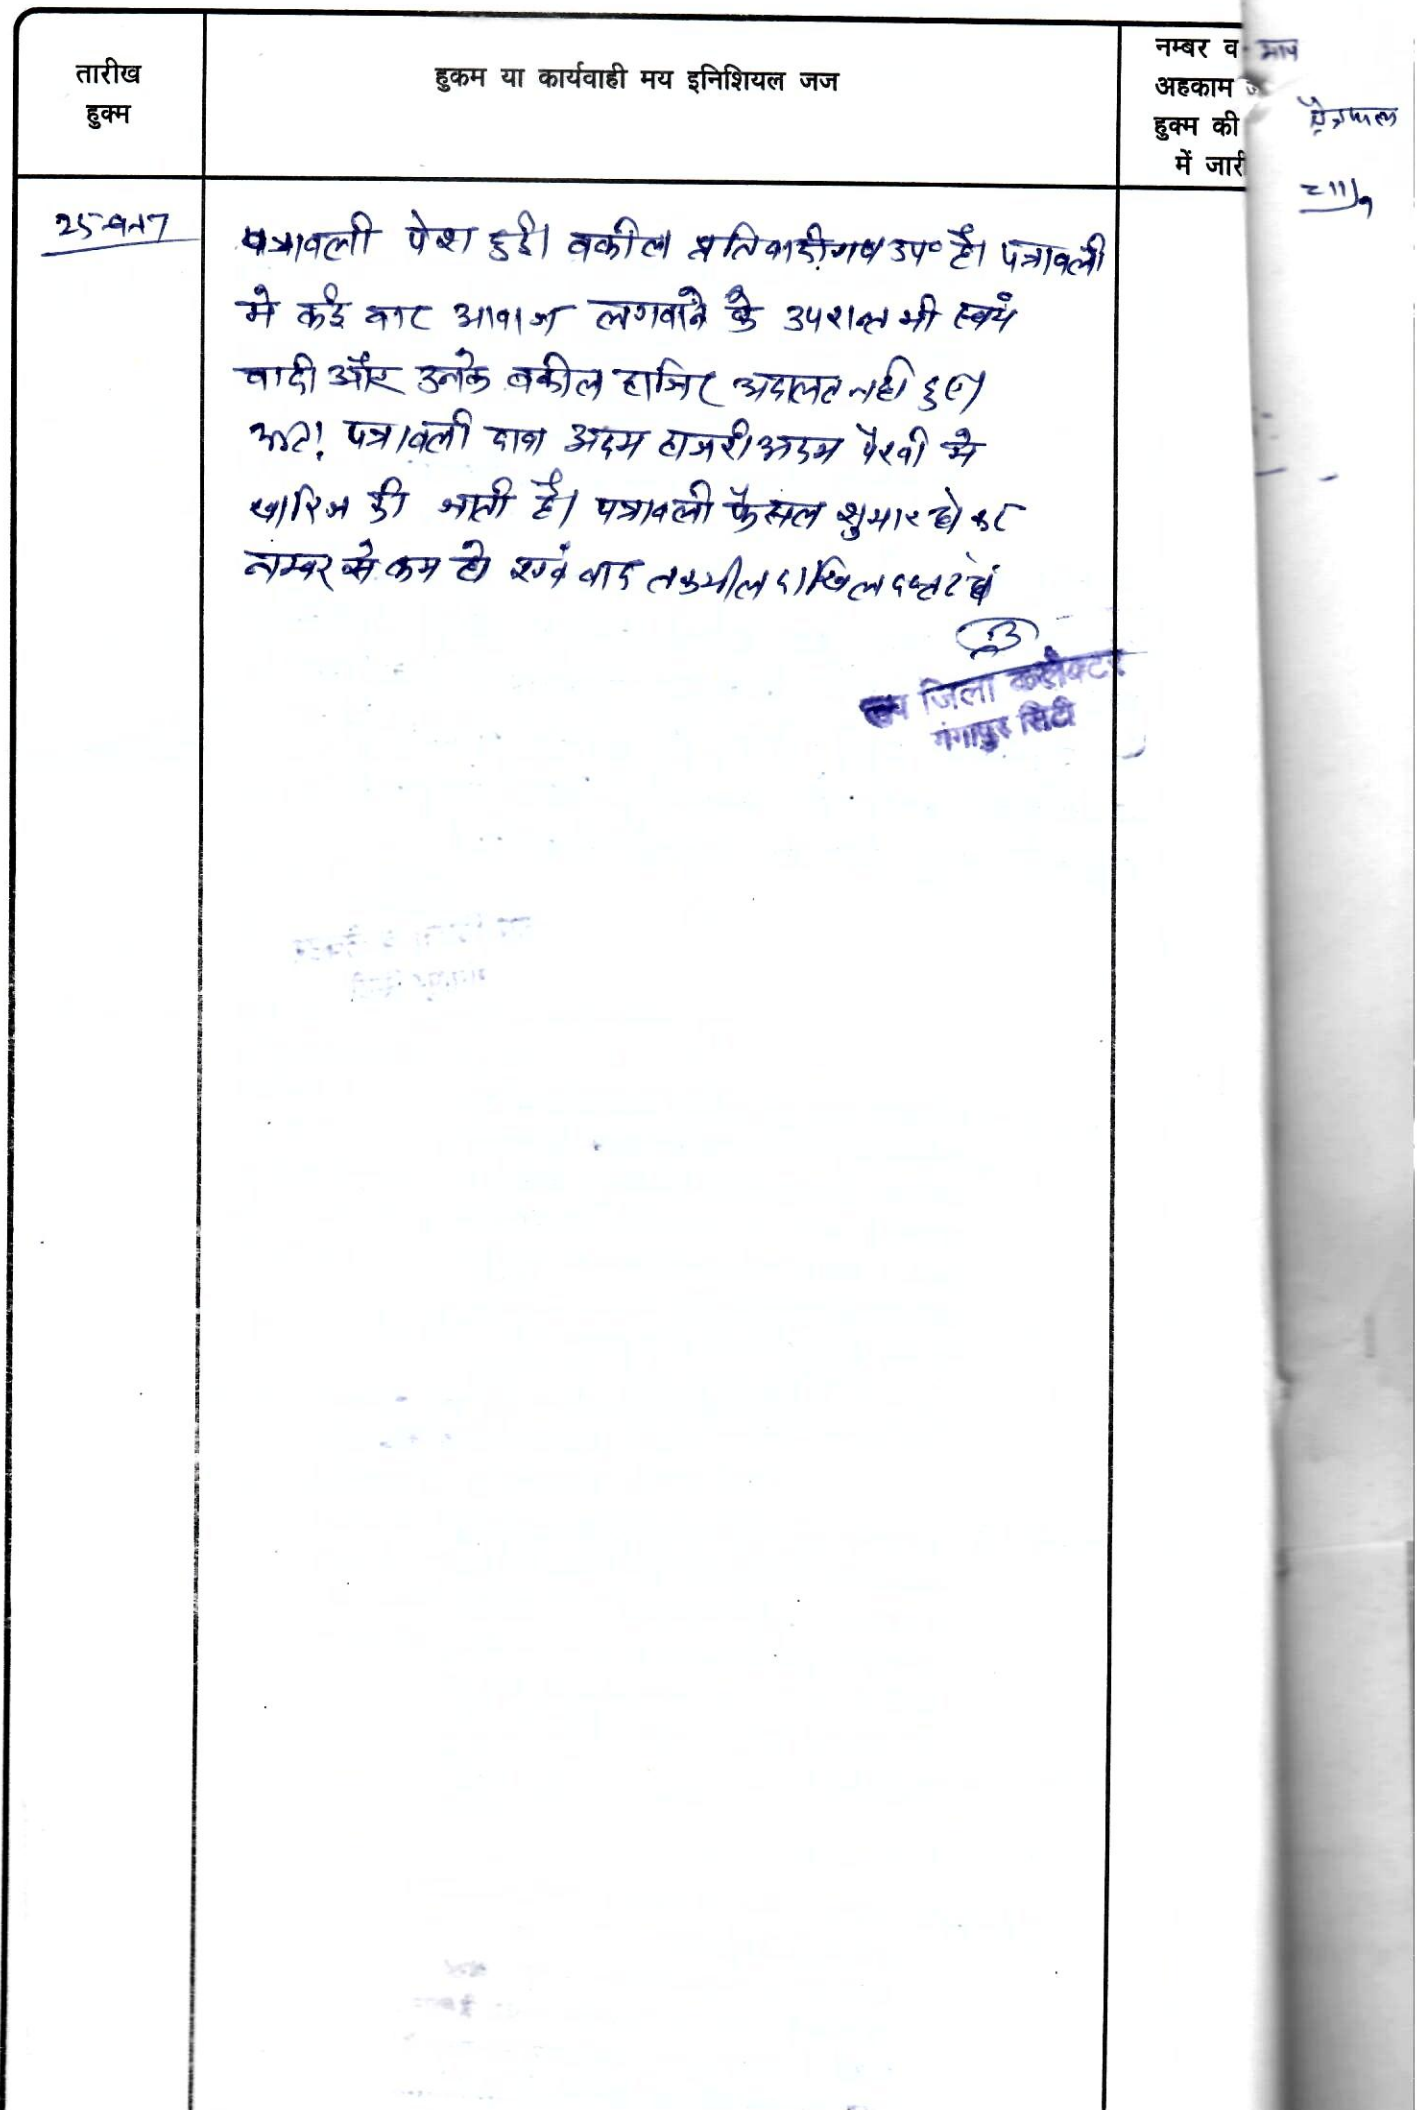 तारीख
हुक्म
हुकम या कार्यवाही मय इनिशियल जज
नम्बर व
अहकाम ज
हुक्म की
में जारी
पत्रावली पेश हुई। वकील प्रतिवादीगण उप० है। पत्रावली
मे कई बार आवाज लगवाने के उपरान्त भी स्वयं
वादी और उनके वकील हाजिर अदालत नही हुए।
अतः पत्रावली दावा अदम हाजरी अदम पैरवी मे
खारिज की जाती है। पत्रावली फैसल शुमार हो कर
नम्बर से कम हो एवं बाद तकमील दाखिल दफ्तर हो
उप जिला कलैक्टर
गंगापुर सिटी